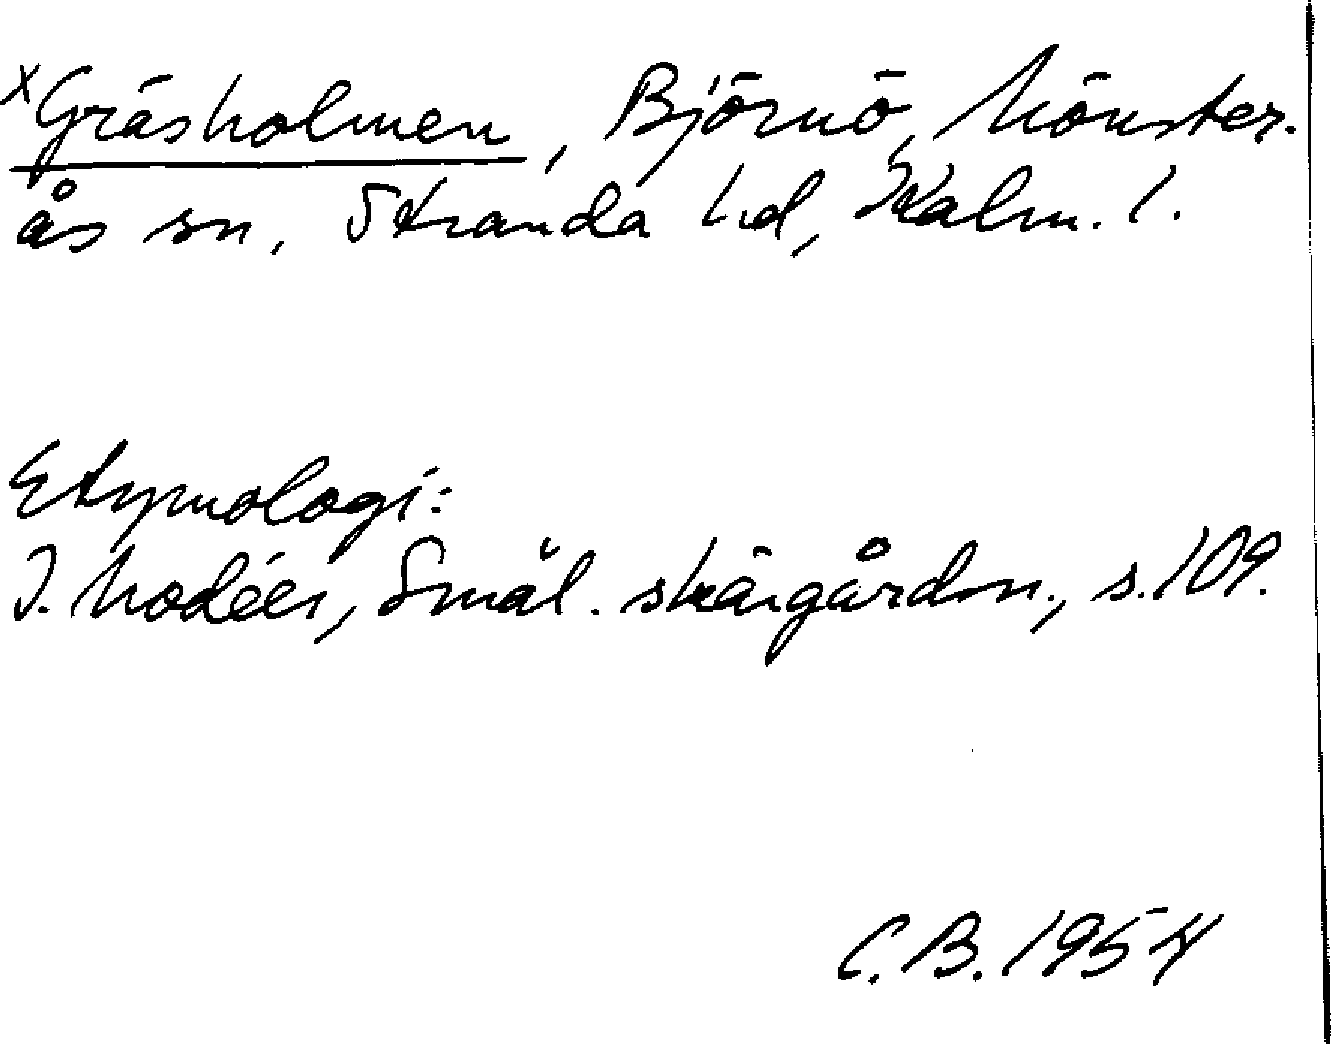 x Gräsholmen, Björnö, Mönster-
ås sn, Stranda hd, Kalm. l.
Etymologi:
I. Modéer, Smål. skärgårdsn., s. 109.
C. B. 1954